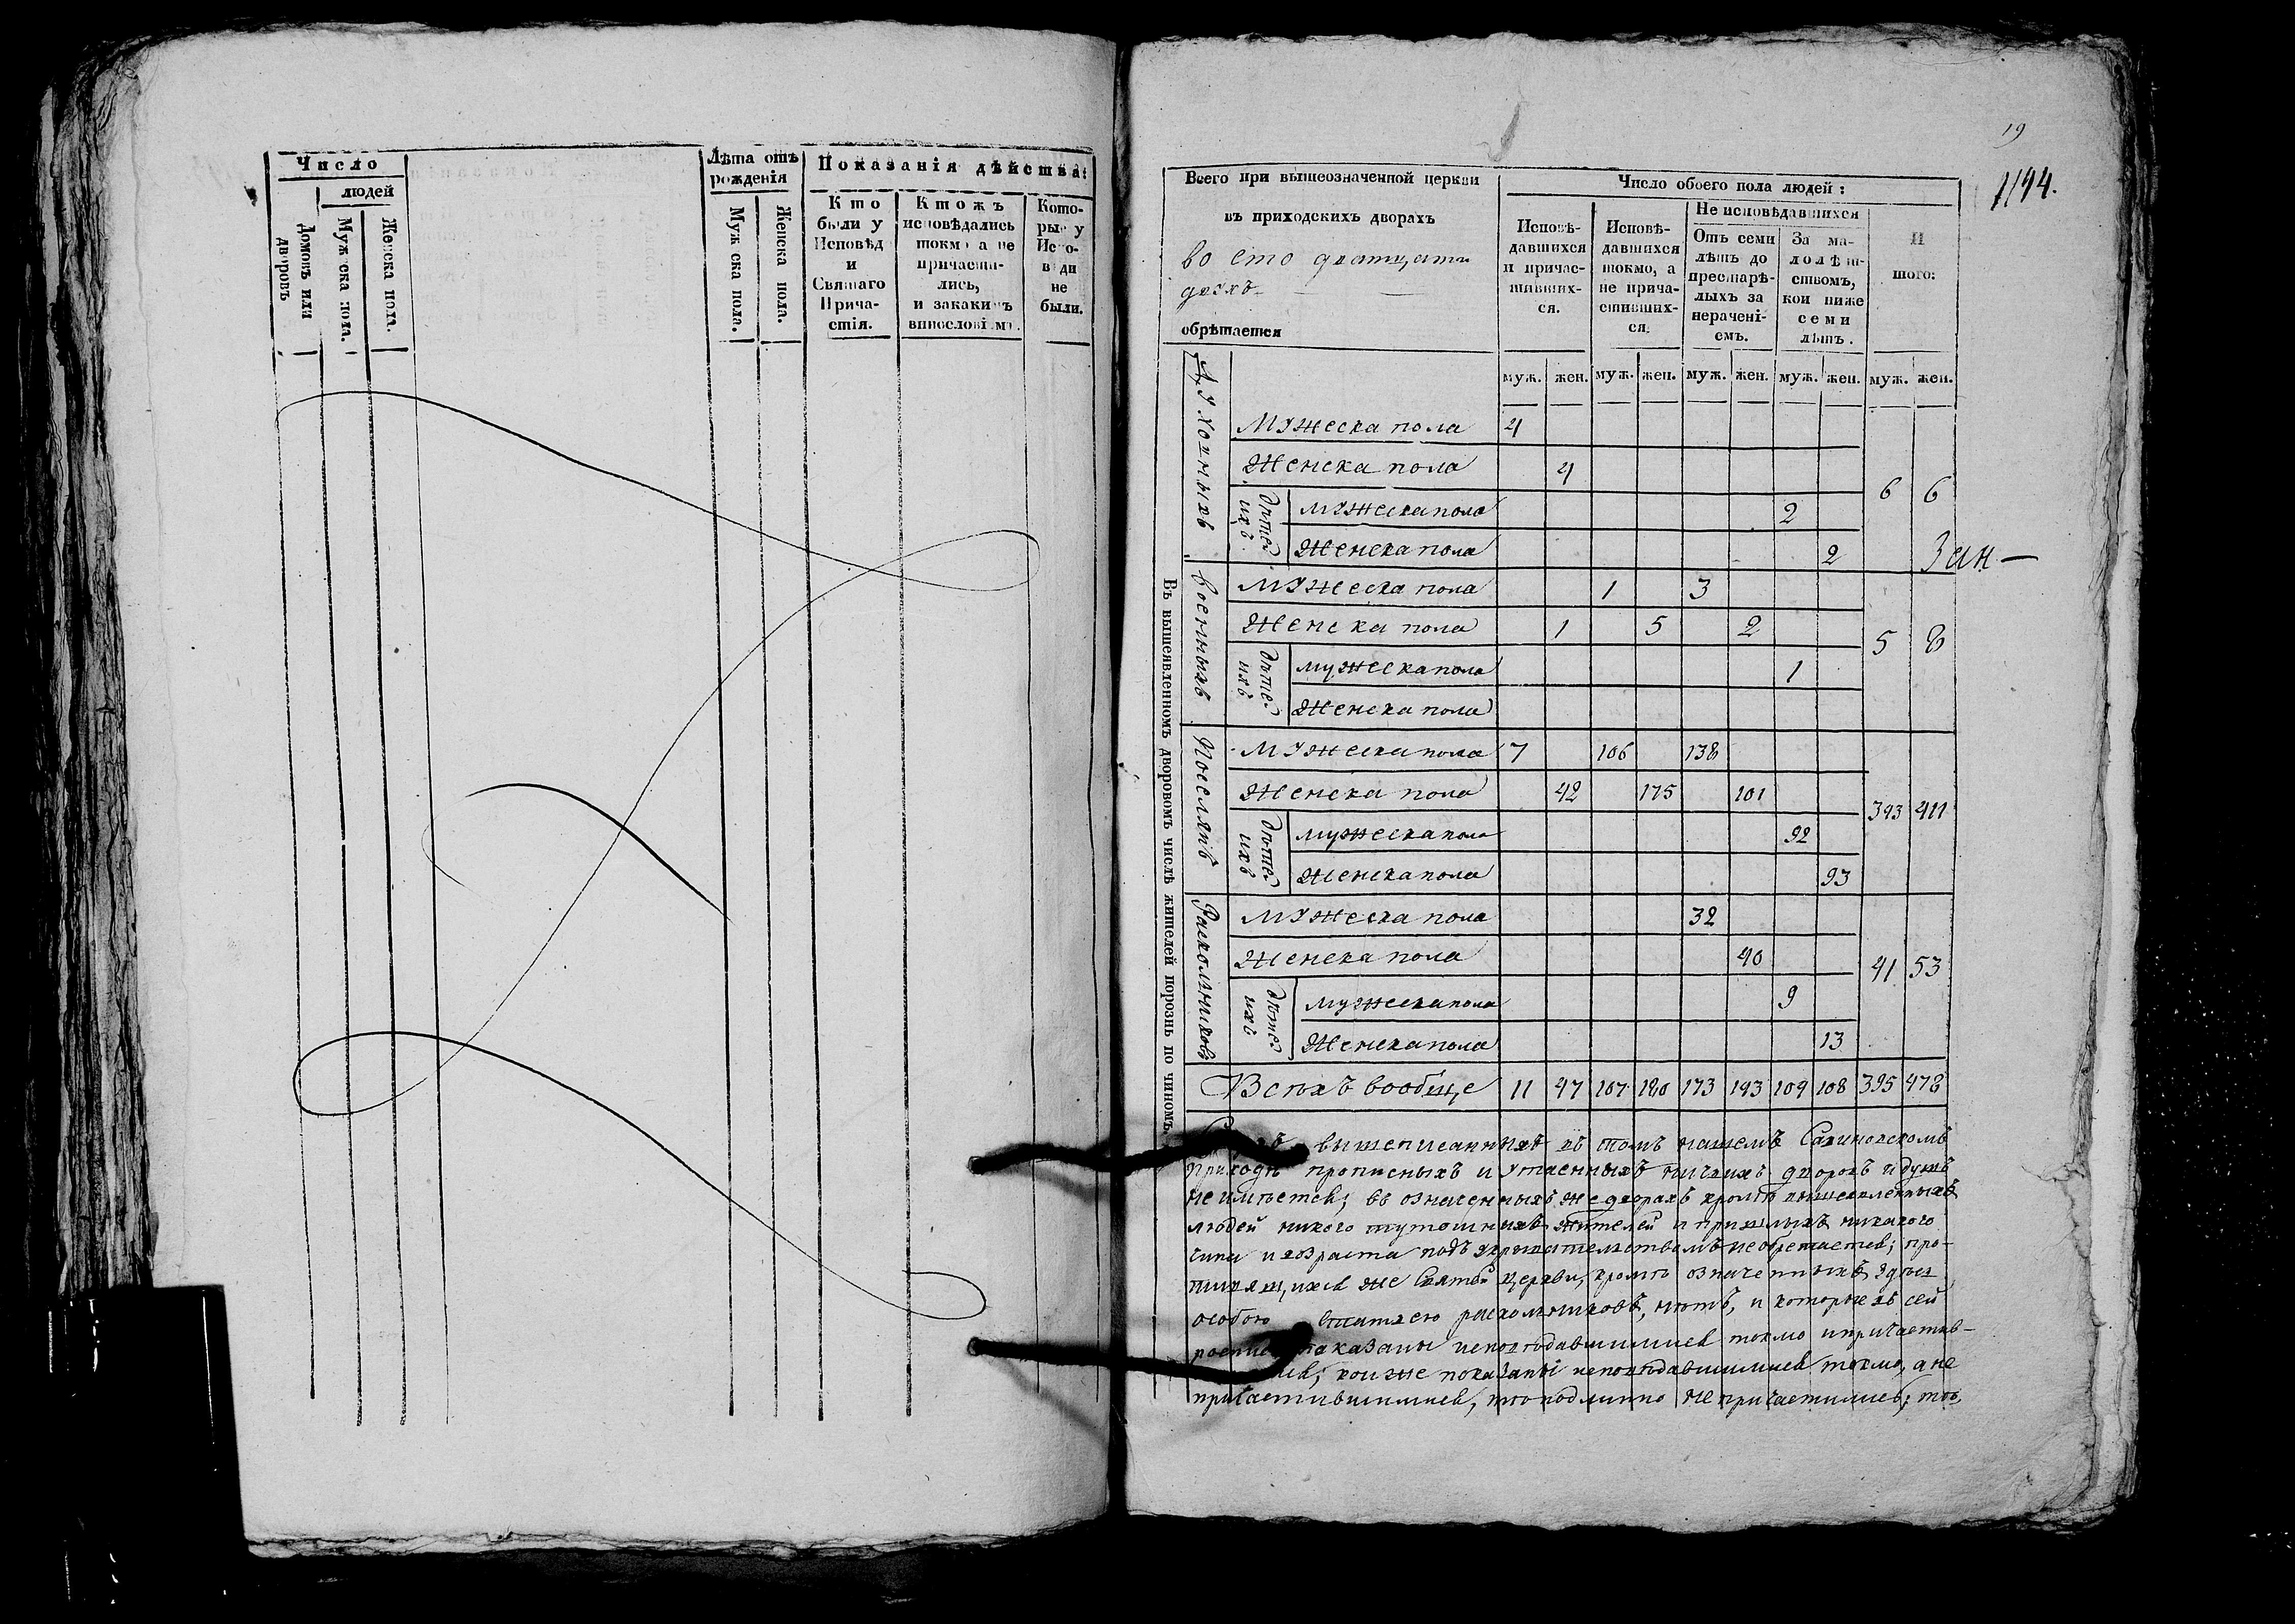 Число
людей
Домовъ или дворовъ
Мужеска пола.
Женска пола.
Лѣта отъ рожденія
Мужеска пола.
Женска пола.
Показанія дѣйства:
Кто были у Исповѣди и Святаго Причастія.
Ктожъ исповѣдались токмо а не причастились, и закакимъ виннословіемъ.
Которые у Исповѣди не были.
19
1194.
Всего при вышеозначенной церкви
въ приходскихъ дворахъ
во сто дватцати
двухъ
обрѣтается
Число обоего пола людей:
Исповѣдавшихся и причастившихся.
Исповѣдавшихся токмо, а не причастившихся.
Не исповѣдавшихся
Отъ семи лѣтъ до престарѣлыхъ за нерачені-емъ.
За малолѣтствомъ, кои ниже семи лѣтъ.
Итого:
муж. жен. муж. жен. муж. жен. муж. жен. муж. жен.
Въ вышеявленномъ дворовомъ числѣ жителей порознь по чиномъ.
Духовныхъ
Мужеска пола 4
Женска пола 4
6 6
дѣтей ихъ
мужеска пола 2
Женска пола 2
Зан—
Военныхъ
Мужеска пола 1 3
Женска пола 1 5 2
5 8
дѣтей ихъ
мужеска пола 1
Женска пола
Поселянъ
Мужеска пола 7 106 138
Женска пола 42 175 101
343 411
дѣтей ихъ
мужеска пола 92
женска пола 93
Раскольниковъ
Мужеска пола 32
Женска пола 40
41 53
дѣтей ихъ
мужеска пола 9
Женска пола 13
Всѣхъ вообще 11 47 107 180 173 143 109 108 395 478
вышеписанныхъ въ томъ нашемъ
приходѣ прописныхъ и утаенныхъ ничьихъ дворовъ и душъ
не имѣется; въ означенныхъ же дворахъ кромѣ вышеявленныхъ
людей никого тутошнихъ жителей и пришлыхъ никакого
чина и возраста подъ укрывательствомъ не обретается; про-
тивящихся же Святой церкви, кромѣ означенныхъ здѣсь
особою статьею раскольниковъ, нѣтъ, и которые въ сей
показаны исповѣдавшимися токмо и причастив-
кои же показаны исповѣдавшимися токмо, а не
причастившимися, то подлинно не причастились; то